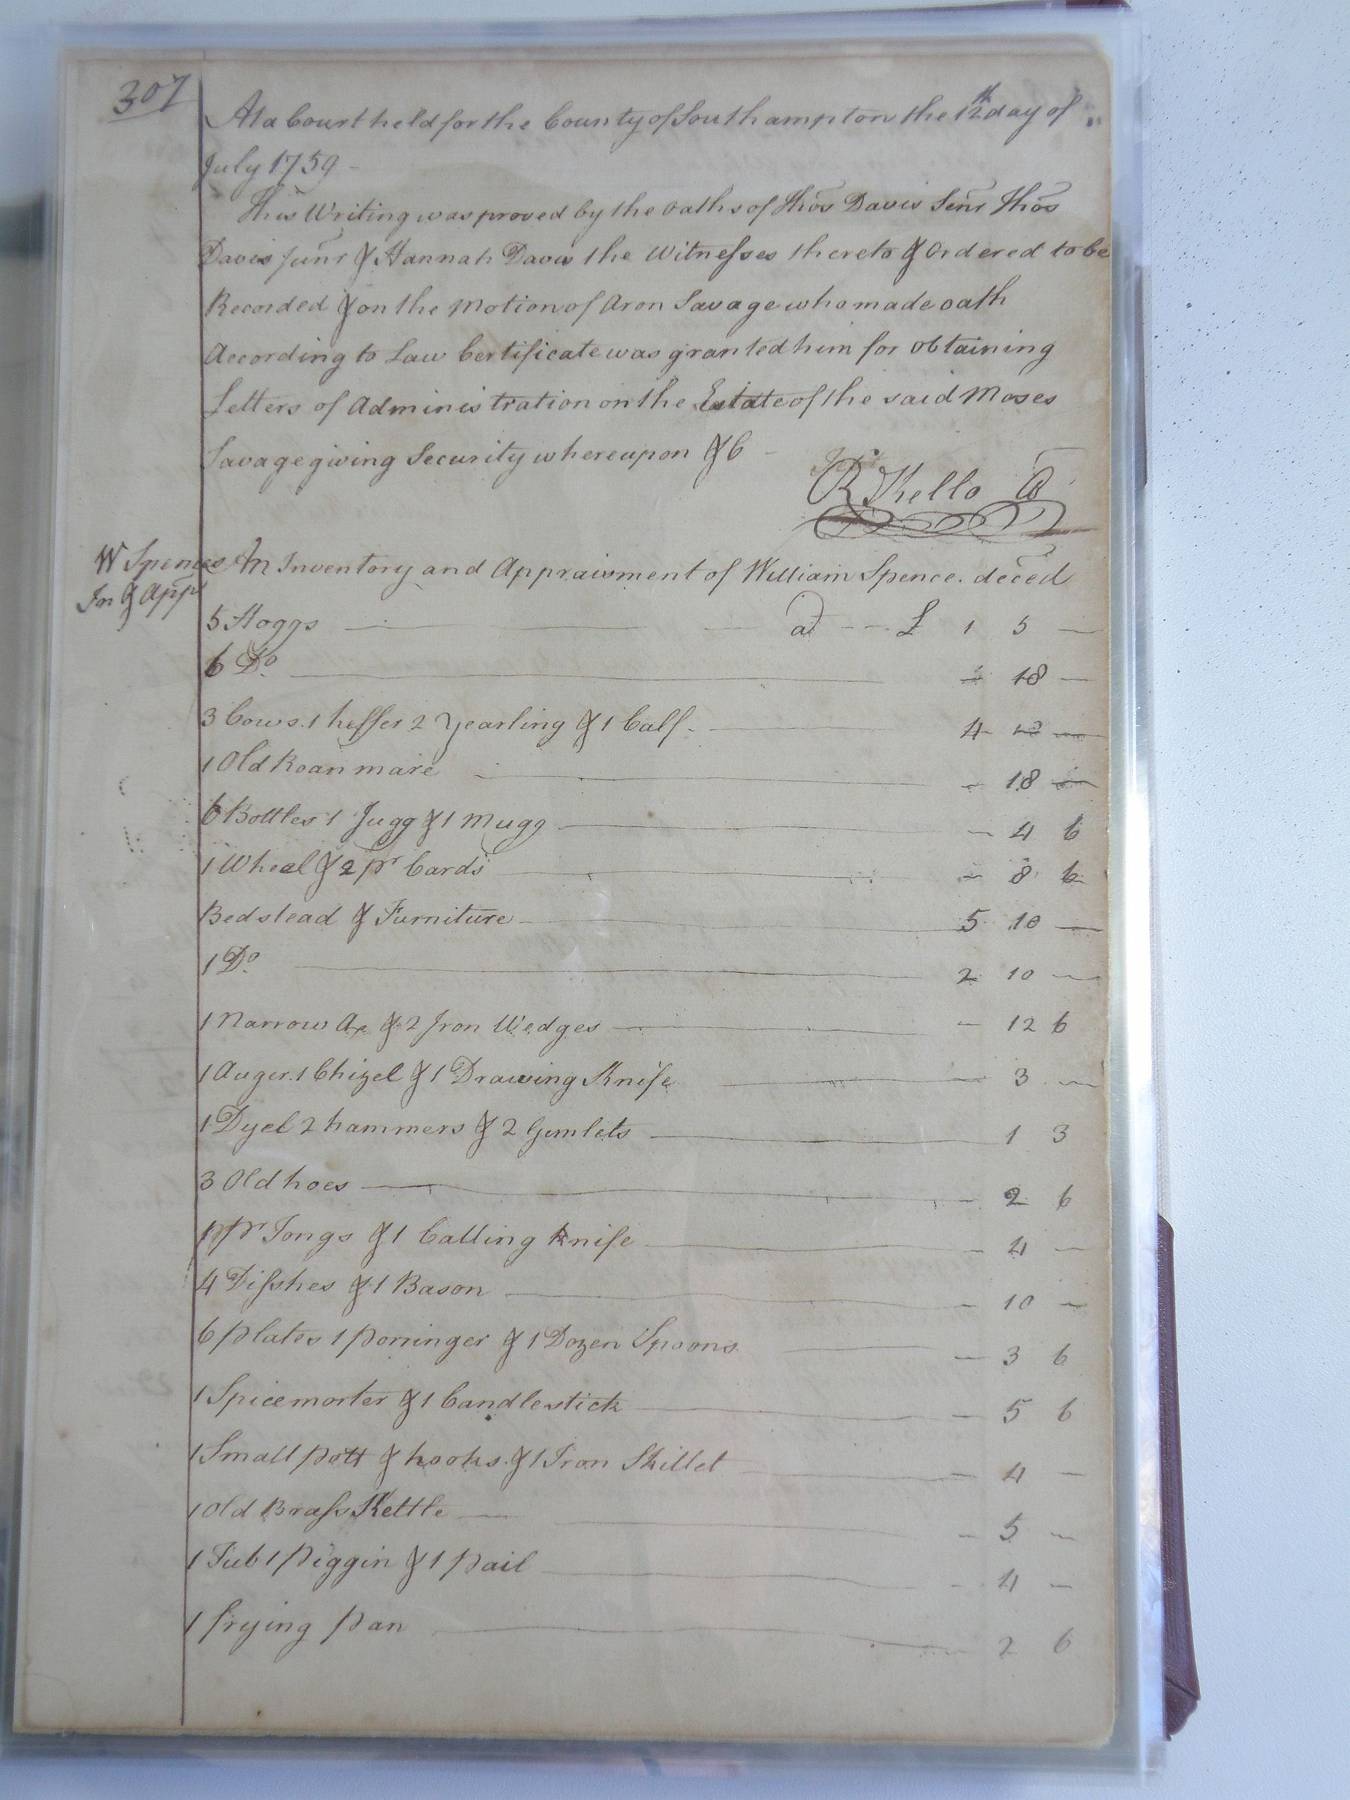 307
At a Court held for the County of Southampton the 12th day of
July 1759 -
This Writing was proved by the Oaths of Thos Davis Senr Thos
Davis Junr & Hannah Davis the Witnesses thereto & Ordered to be
Recorded & on the Motion of Aron Savage who made oath
According to Law Certificate was granted him for obtaining
Letters of Administration on the Estate of the said Moses
Savage giving Security whereupon &C -
R Kello
W Spences
In & App
An Inventory and Appraisment of William Spence. deced
5 Hoggs — a — £ 1 5 —
6 Do. — 18 —
3 Cows. 1 heffer 2 Yearling & 1 Calf - 4 —
1 Old Roan mare — 18 —
6 Bottles 1 Jugg & 1 Mugg — 4 6
1 Wheel & 2 pr Cards — 8 6
Bedstead & Furniture — 5 10 —
1 Do. — 2 10 —
1 Narrow Ax & 2 Iron Wedges — 12 6
1 Auger. 1 Chizel & 1 Drawing Knife — 3 —
1 2 hammers & 2 Gimlets — 1 3
3 Old hoes — 2 6
1 pr Tongs & 1 Cutting Knife — 4 —
4 Disshes & 1 Bason — 10 —
6 plates 1 porringer & 1 Dozen Spoons — 3 6
1 Spicemorter & 1 Candlestick — 5 6
1 Small pott & hooks. & 1 Iron Skillet — 4 —
1 Old Brass Kettle — 5 —
1 Tub 1 piggin & 1 pail — 4 —
1 frying pan — 2 6